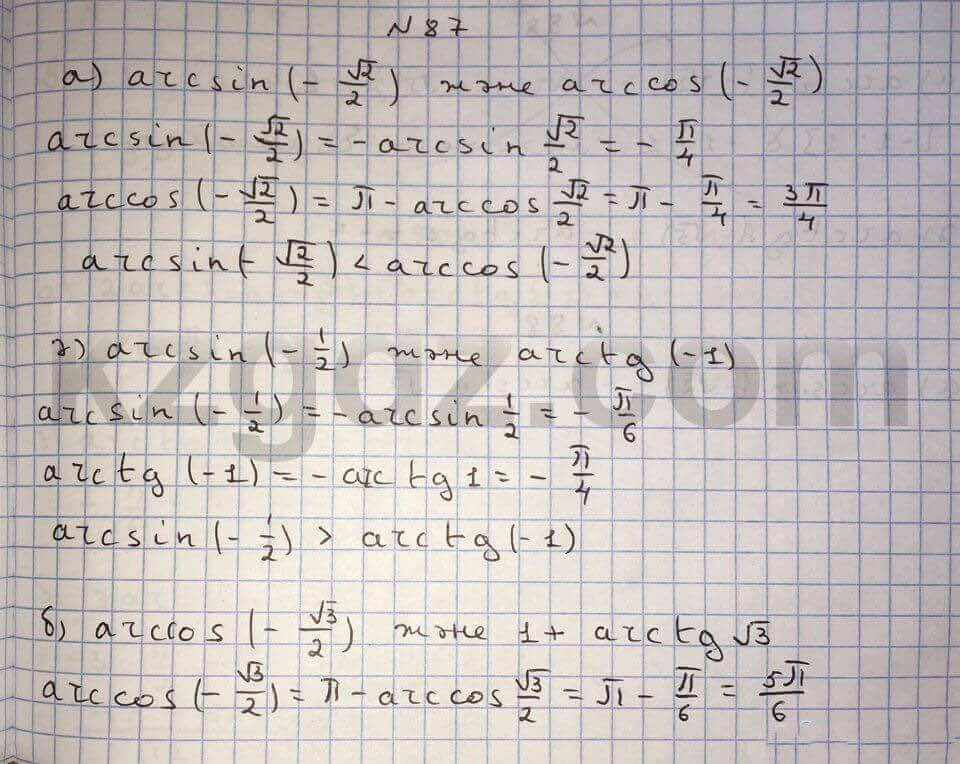 N 87
а) arcsin (- √2/2) және arccos (- √2/2)
arcsin (- √2/2) = - arcsin √2/2 = - π/4
arccos (- √2/2) = π - arccos √2/2 = π - π/4 = 3π/4
arcsin (- √2/2) < arccos (- √2/2)
г) arcsin (- 1/2) және arctg (-1)
kzgdz.com
arcsin (- 1/2) = - arcsin 1/2 = - π/6
arctg (-1) = - arctg 1 = - π/4
arcsin (- 1/2) > arctg (-1)
б) arccos (- √3/2) және 1 + arctg √3
arccos (- √3/2) = π - arccos √3/2 = π - π/6 = 5π/6